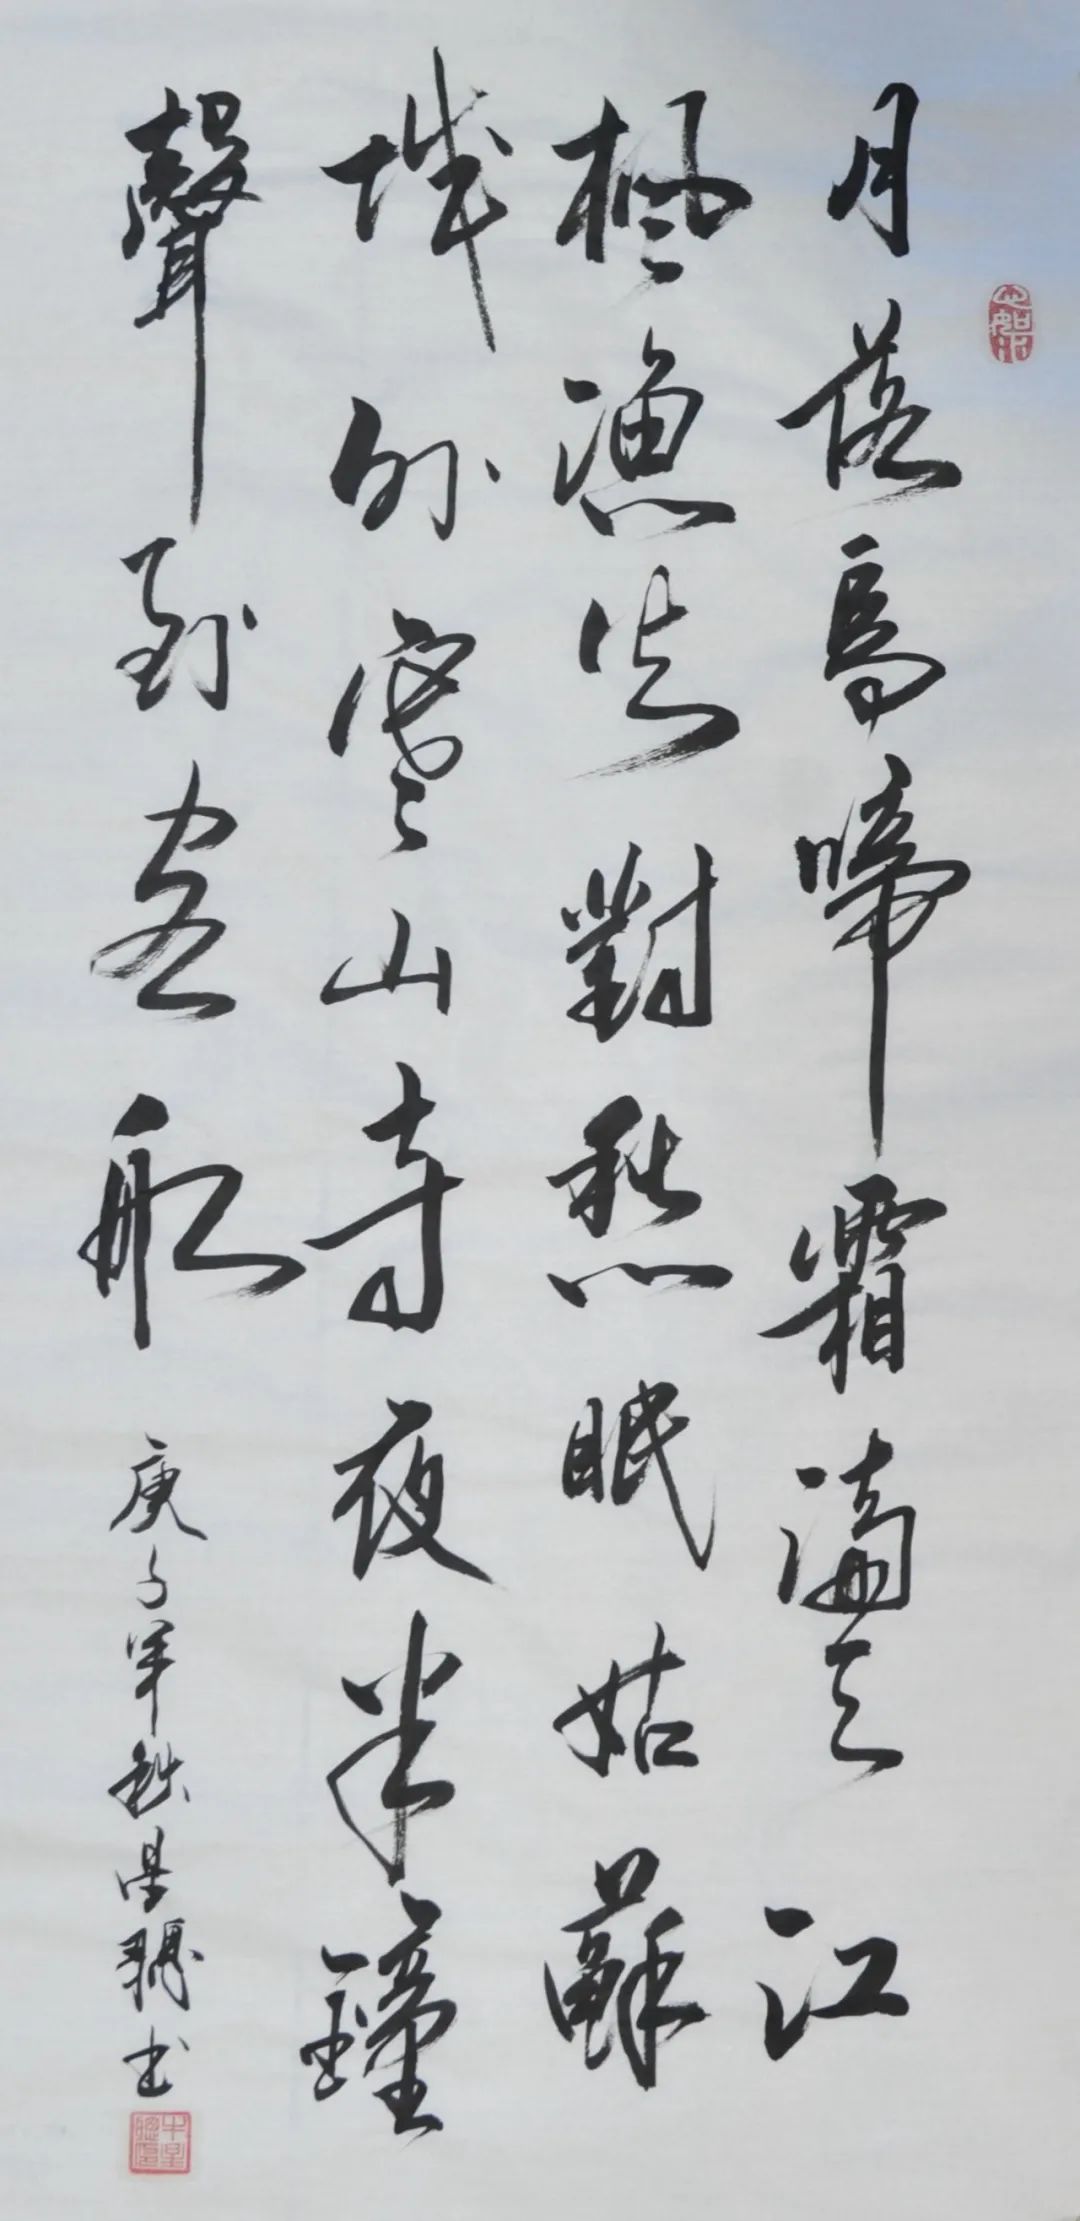 月落烏啼霜滿天江
楓漁火對愁眠姑蘇
城外寒山寺夜半鐘
聲到客船
庚子年秋昌驪书